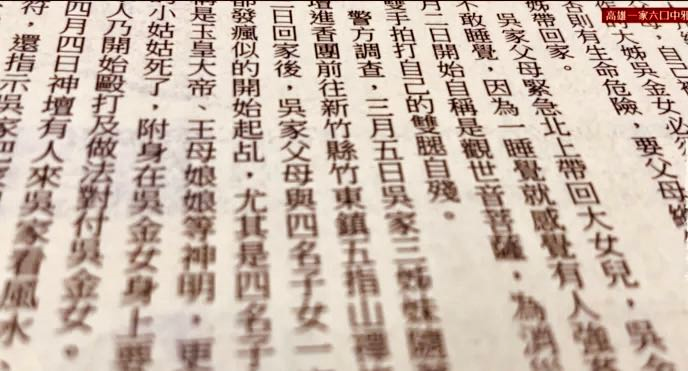 高雄一家六口中邪
，自己
的大姊吳金女必須
否則有生命危險，要父母
姊帶回家。
吳家父母緊急北上帶回大女兒，吳金
不敢睡覺，因為一睡覺就感覺有人強姦
月二日開始自稱是觀世音菩薩，為消災
雙手拍打自己的雙腿自殘。
警方調查，三月五日吳家三姊妹隨
壇進香團前往新竹縣竹東鎮五指山禪
二日回家後，吳家父母與四名子女一
都發瘋似的開始起乩，尤其是四名子
將是玉皇大帝、王母娘娘等神明，更
小姑姑死了，附身在吳金女身上要
人乃開始毆打及做法對付吳金女。
四月四日神壇有人來吳家看風水
符，還指示吳家把